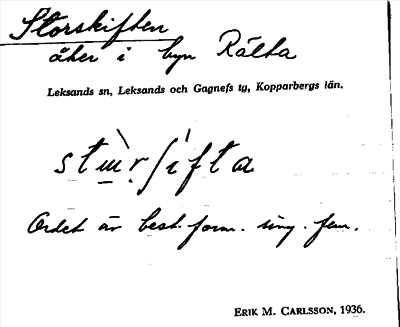 Storskiften
åker i byn Rälta
Leksands sn, Leksands och Gagnefs tg, Kopparbergs län.
Ordet är best. form. sing. fem.
ERIK M. CARLSSON, 1936.